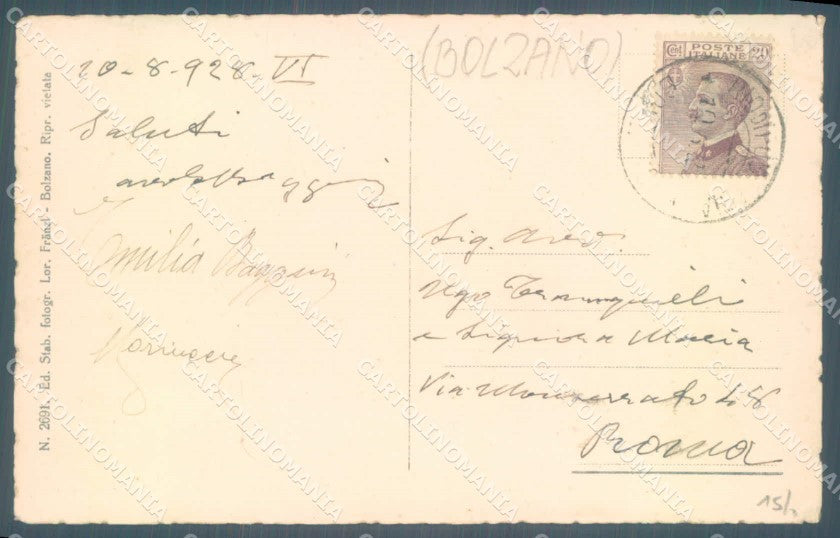 (BOLZANO)
POSTE
ITALIANE
Cent. 20
20-8-928-VI
Saluti
Emilia
Sig. Avv.
Ugo Tranquilli
e Signora Maria
Via Monserrato 48
Roma
15/
N. 2691. - Ed. Stab. fotogr. Lor. Fränzl - Bolzano. Ripr. vietata
CARTOLINOMANIA